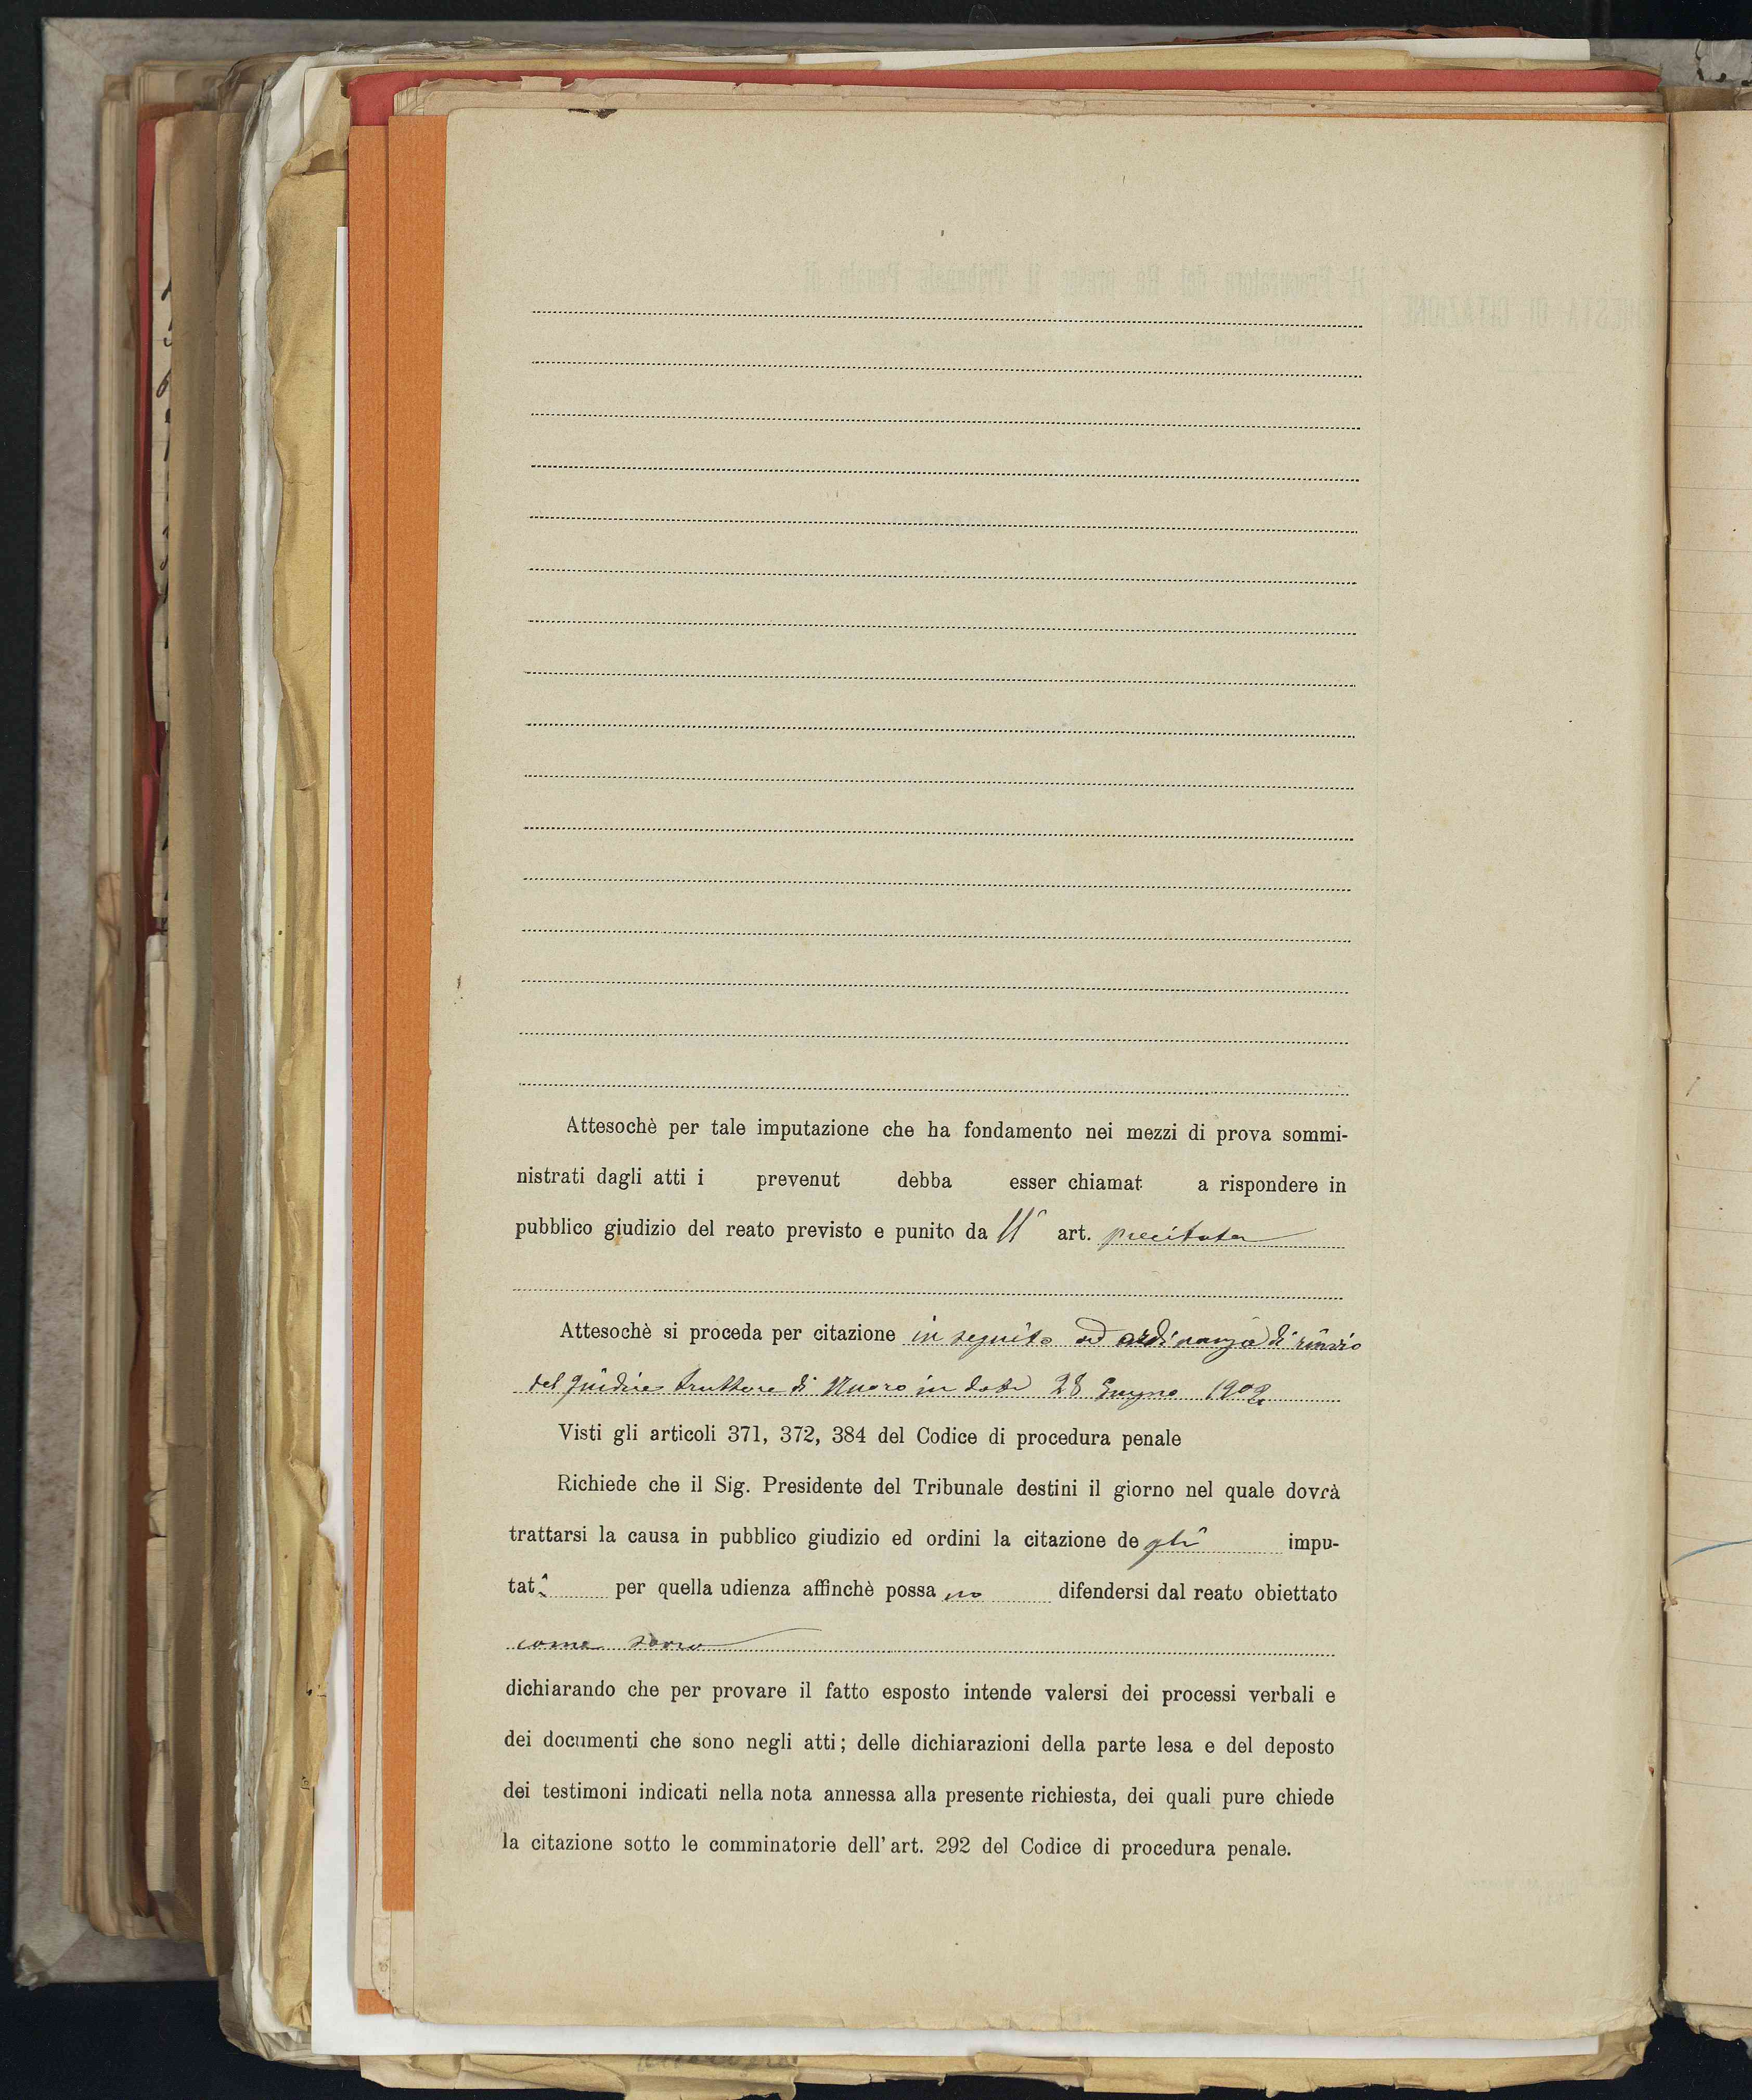 Attesochè per tale imputazione che ha fondamento nei mezzi di prova sommi-
nistrati dagli atti i prevenut debba esser chiamat a rispondere in
pubblico giudizio del reato previsto e punito da ll' art. precitato
Attesochè si proceda per citazione in seguito ad ordinanza di rinvio
del Giudice Iruttore di Nuoro in data 28 Giugno 1902
Visti gli articoli 371, 372, 384 del Codice di procedura penale
Richiede che il Sig. Presidente del Tribunale destini il giorno nel quale dovrà
trattarsi la causa in pubblico giudizio ed ordini la citazione de gli impu-
tati per quella udienza affinchè possa no difendersi dal reato obiettato
come sovra
dichiarando che per provare il fatto esposto intende valersi dei processi verbali e
dei documenti che sono negli atti; delle dichiarazioni della parte lesa e del deposto
dei testimoni indicati nella nota annessa alla presente richiesta, dei quali pure chiede
la citazione sotto le comminatorie dell' art. 292 del Codice di procedura penale.